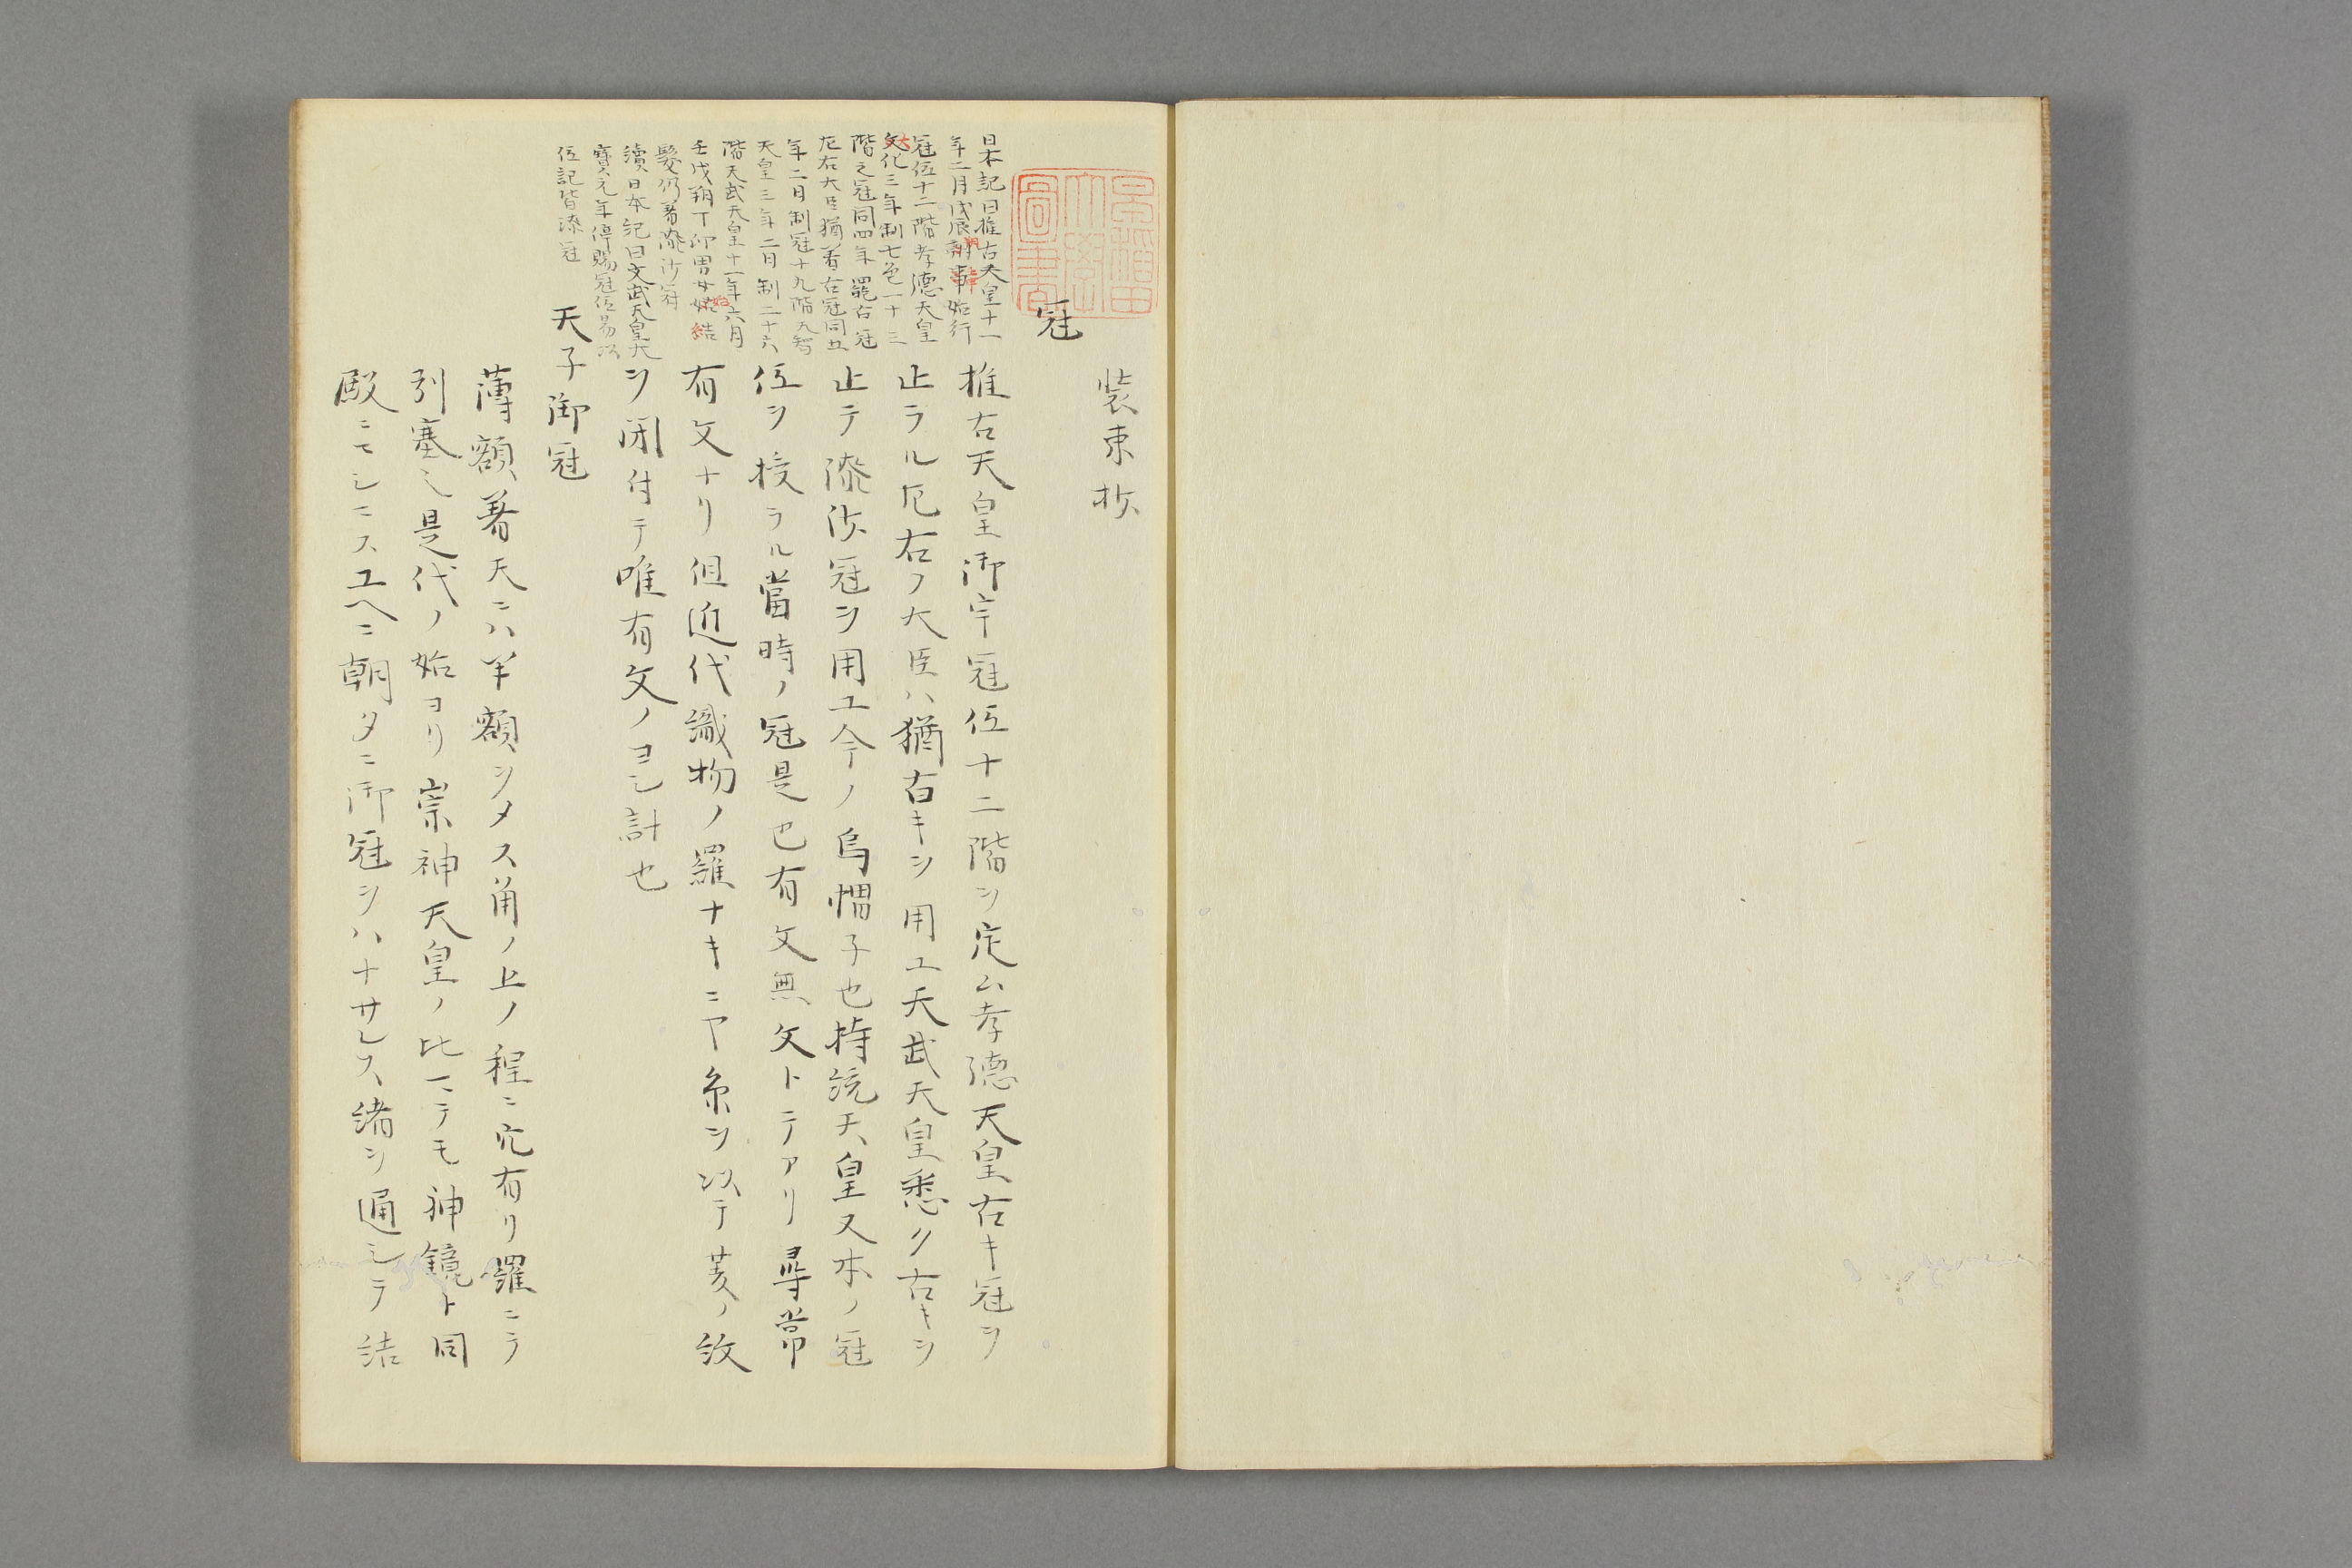 装束抄
冠
推古天皇御宇冠位十二階ヲ定ム孝徳天皇古キ冠ヲ
止ラル左右ノ大臣ハ猶古キヲ用ユ天武天皇悉ク古キヲ
止テ漆紗冠ヲ用ユ今ノ烏帽子也持統天皇又本ノ冠
位ヲ授ラル當時ノ冠是也有文無文トテアリ尋常
有文ナリ但近代織物ノ羅ナキニヤ糸ヲ以テ菱ノ紋
ヲ閉付テ唯有文ノヨシ計也
天子御冠
薄額着天ニハ半額ヲメス角ノ上ノ程ニ穴有リ羅ニテ
引塞シ是代ノ始ヨリ崇神天皇ノ比ニテモ神鏡ト同
殿ニモシニスユヘニ朝夕ニ御冠ヲハナサレス緒ヲ通シテ結
日本記曰推古天皇十一
年二月戊辰朔事始行
冠位十二階孝徳天皇
大化三年制七色一十三
階之冠同四年罷古冠
左右大臣猶着古冠同五
年二月制冠十九階天智
天皇三年二月制二十六
階天武天皇十一年六月
壬戌朔丁卯男女始結
髪仍着漆沙冠
續日本紀曰文武天皇大
寶元年停賜冠位易以
位記皆漆冠